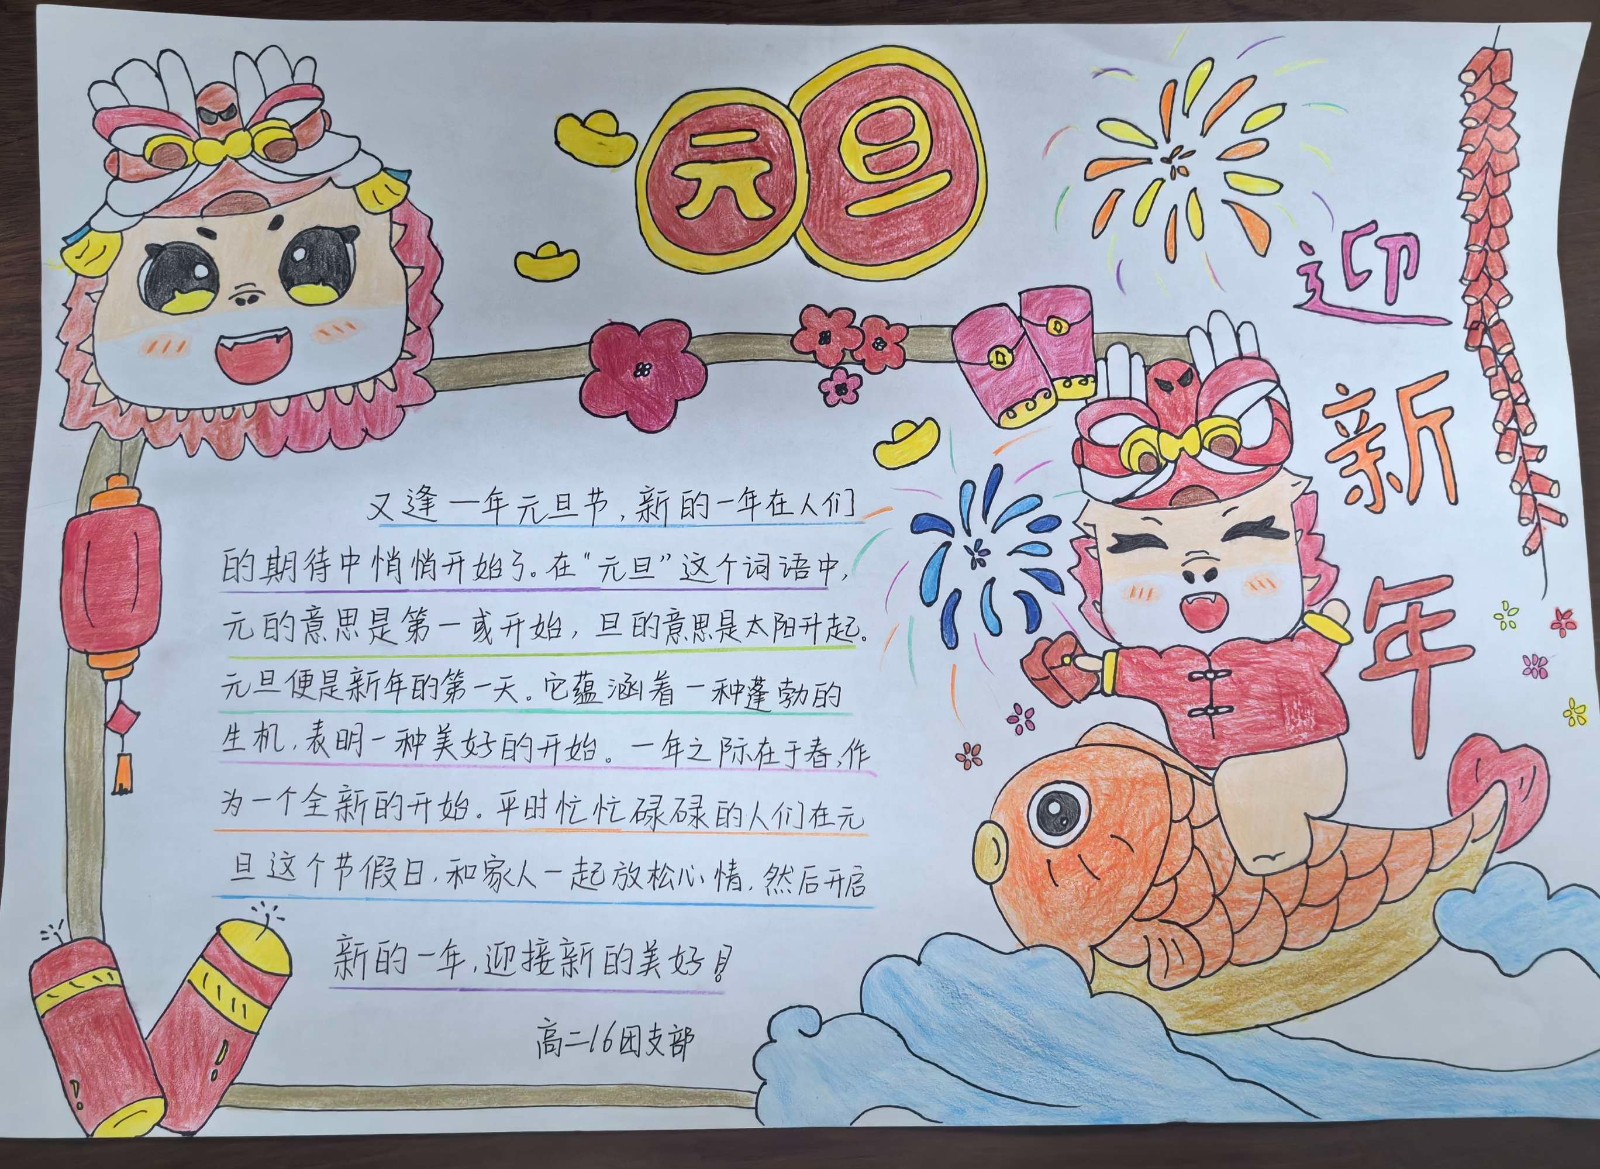 元旦
迎
新
年
又逢一年元旦节,新的一年在人们
的期待中悄悄开始了。在“元旦”这个词语中,
元的意思是第一或开始,旦的意思是太阳升起。
元旦便是新年的第一天。它蕴涵着一种蓬勃的
生机,表明一种美好的开始。一年之际在于春,作
为一个全新的开始。平时忙忙碌碌的人们在元
旦这个节假日,和家人一起放松心情,然后开启
新的一年,迎接新的美好!
高二16团支部